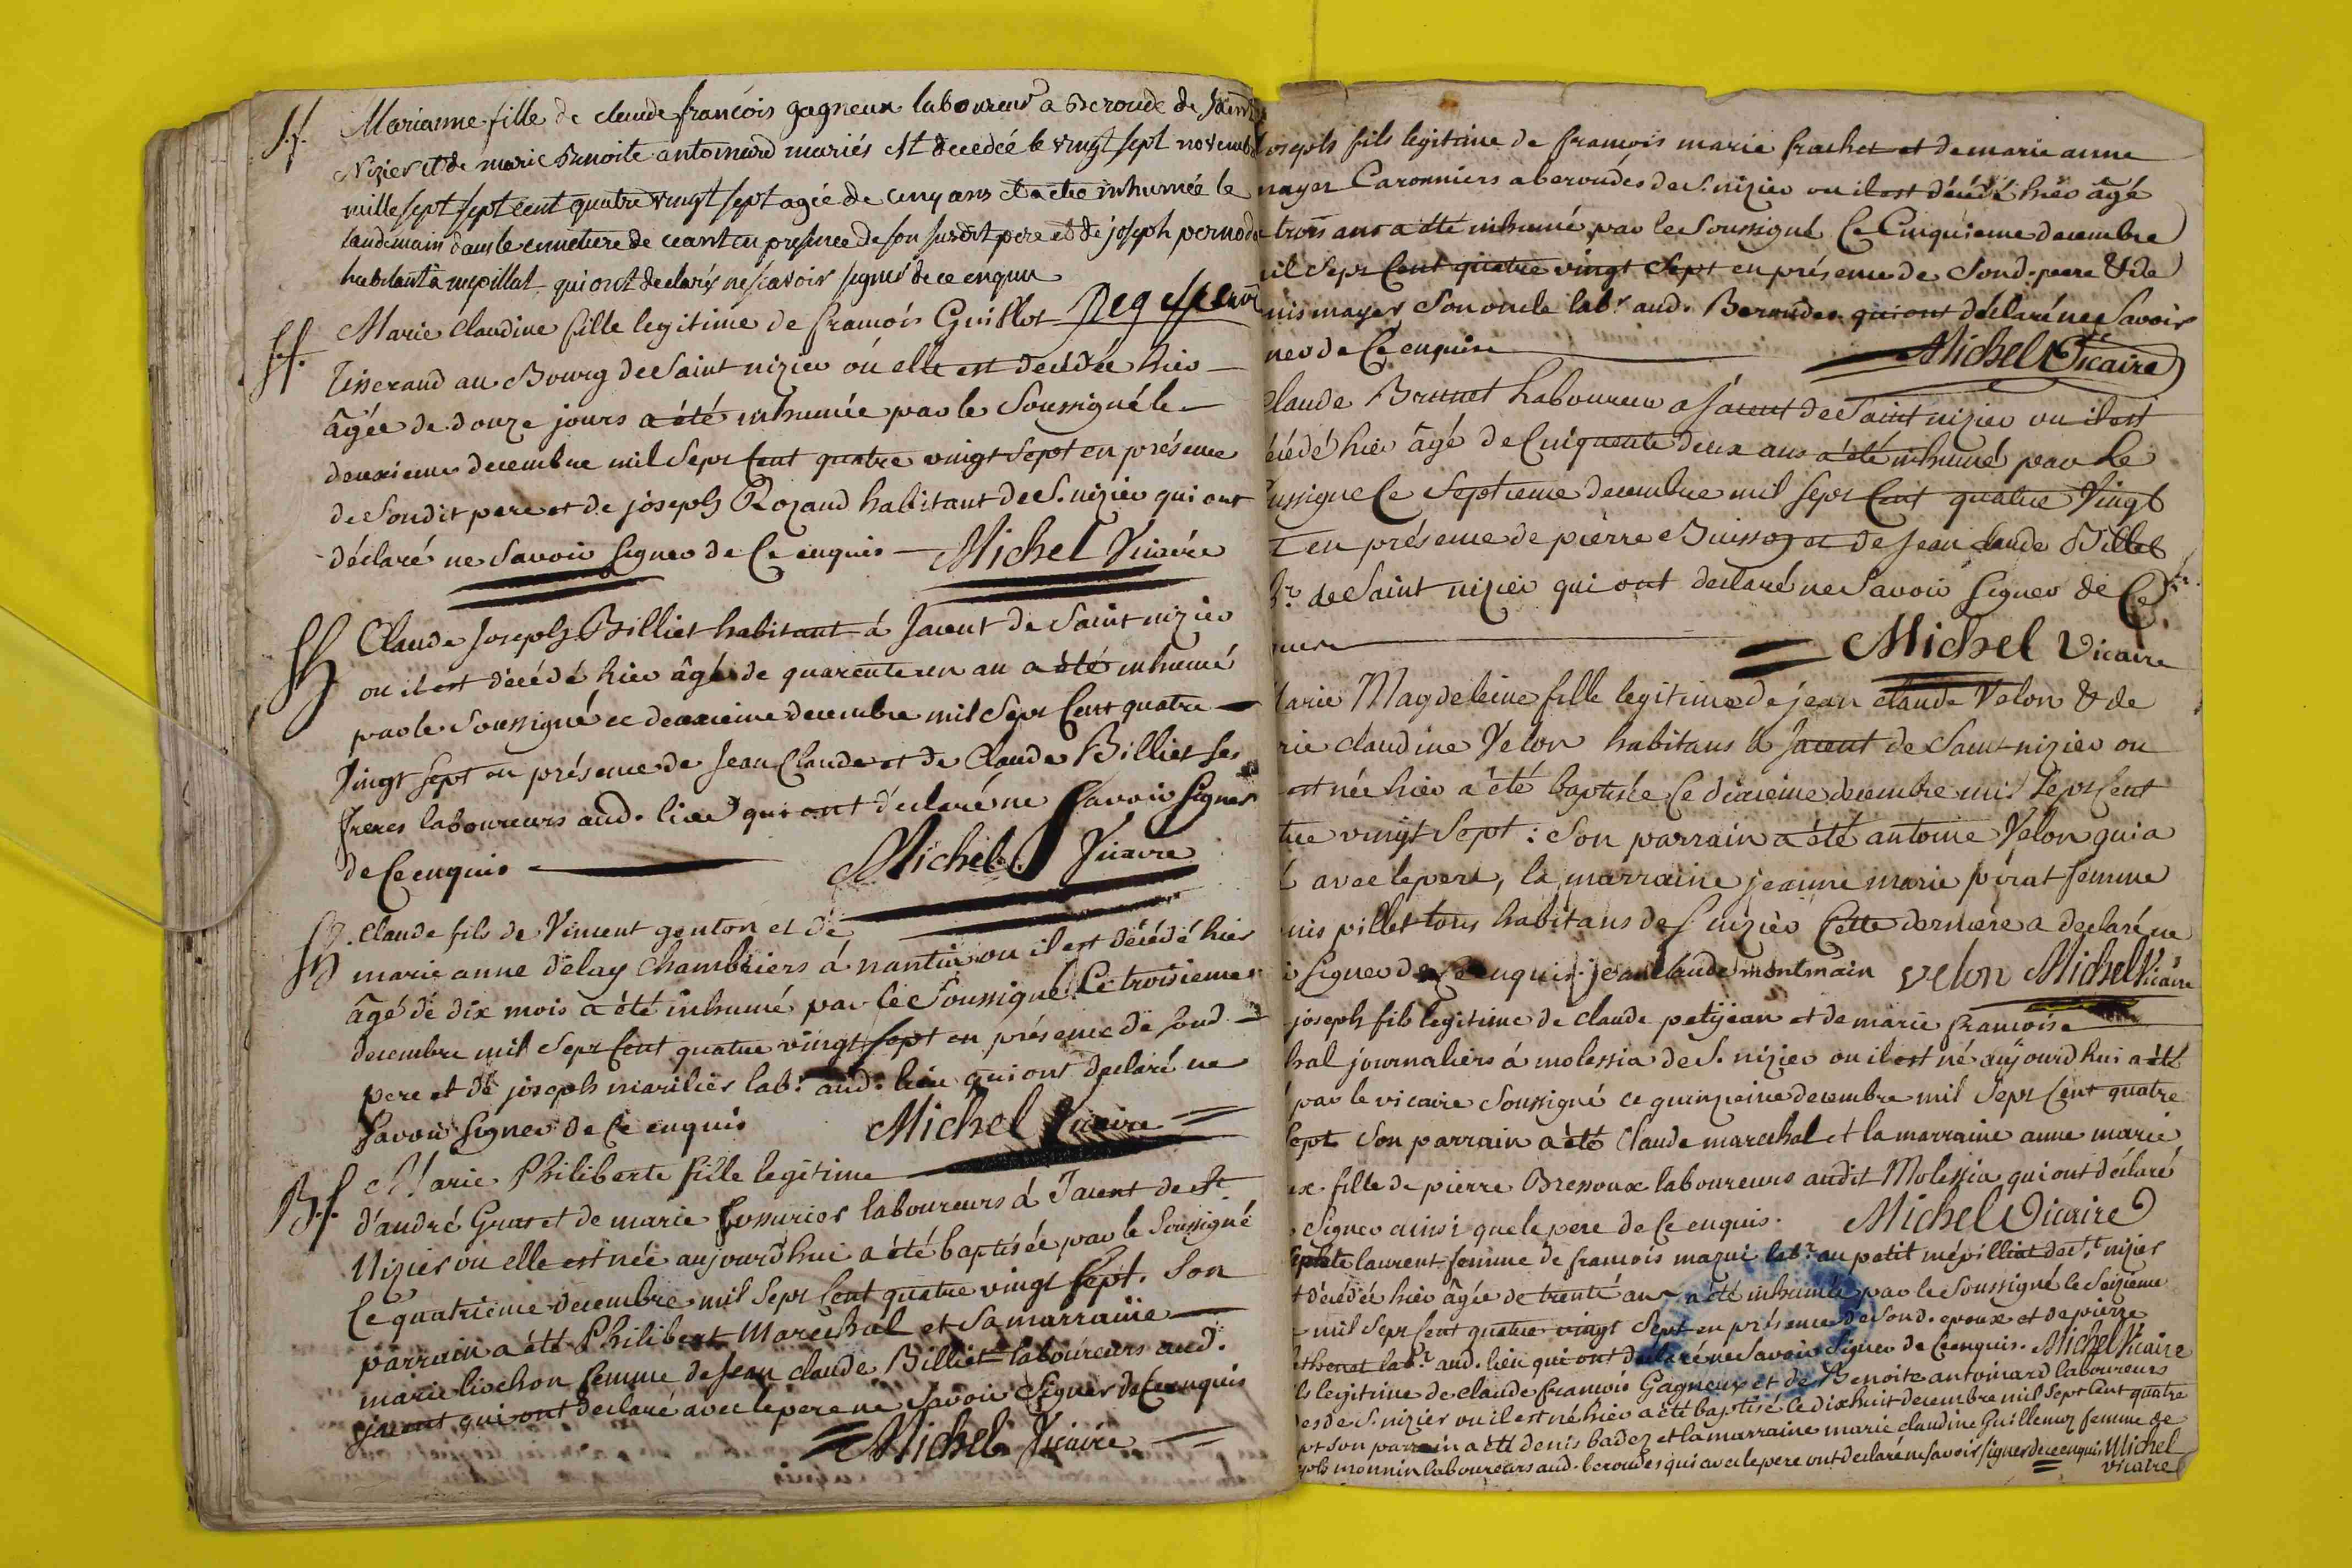 S.f. Marianne fille de claude françois gagneux laboureur a Beroude de saint
Nizier et de marie Benoite antoinard mariés est decedée le vingt sept novemb
mille sept sept cent quatre vingt sept agée de cinq ans et a ete inhumée le
landemain dans le cimetiere de ceant en presence de son susdit pere et de joseph pernod
habitant à mepillat qui ont declarés ne scavoir signer de ce enquis
Marie Claudine fille legitime de francois Guillot
Tisserand au Bourg de Saint nizier où elle est décédée hier
âgée de douze jours a été inhumée par le Soussigné le
deuxieme decembre mil Sept Cent quatre vingt Sept en présence
de Sondit pere et de joseph Rozand habitant de S. nizier qui ont
déclaré ne Savoir Signer de Ce enquis Michel Vicaire
Claude Joseph Billiet habitant à Jacent de Saint nizier
ou il est décédé hier âgé de quarente un an a été inhumé
par le Soussigné ce deuxieme decembre mil Sept Cent quatre
Vingt Sept en présence de Jean Claude et de Claude Billiet Ses
freres laboureurs aud. lieu qui ont déclaré ne Savoir Signer
de Ce enquis Michel Vicaire
Claude fils de Vincent gonton et de
marie anne delay Chambriers á nantui ou il est décédé hier
âgé de dix mois a été inhumé par le Soussigné Ce troisieme
decembre mil Sept Cent quatre vingt Sept en présence de Sond
pere et de joseph marilier lab. aud. lieu qui ont déclaré ne
Savoir Signer de Ce enquis Michel Vicaire
B.f. Marie Philiberte fille legitime
d'andré Gras et de marie laboureurs á Jacent de St
Nizier ou elle est née aujourdhui a été baptisée par le Soussigné
Ce quatrieme decembre mil Sept Cent quatre vingt Sept. Son
parrain a été Philibert Marechal et Sa marraine
marie lichon femme de Jean claude Billiet laboureurs aud.
jacent qui ont declaré avec le pere ne Savoir Signer de Ce enquis
Michel Vicaire
oseph fils legitime de françois marie frachet et de marie anne
mayer Caronniers a beroudes de S. nizier ou il est décédé hier âgé
trois ans a été inhumé par le Soussigné Ce Cinquieme decembre
il Sept Cent quatre vingt Sept en présence de Sond. pere & de
nis mayer Son oncle labr. aud. Beroudes qui ont déclaré ne Savoir
ner de Ce enquis Michel Vicaire
Claude Brunet Laboureur a Jacent de Saint nizier ou il est
écédé hier âgé de Cinquente deux ans a été inhumé par le
ussigné Ce Septieme decembre mil Sept Cent quatre Vingt
t en présence de pierre Buisson et de Jean claude Billet
br. de Saint nizier qui ont déclaré ne Savoir Signer de Ce
quis Michel Vicaire
arie Magdeleine fille legitime de jean claude Velon & de
rie claudine Velon habitans à Jacent de Saint nizier ou
est née hier a été baptisée Ce dixieme decembre mil Sept Cent
tre vingt Sept : Son parrain a été antoine Velon qui a
é avec le pere, la marraine jeanne marie pirat femme
nis pillet tous habitans de S nizier Cette derniere a declaré ne
r Signer de Ce enquis. jean claude montmain velon Michel Vicaire
joseph fils legitime de claude petijean et de marie françoise
hal journaliers á molessia de S. nizier ou il est né aujourd'hui a été
par le vicaire Soussigné ce quinzieme decembre mil Sept Cent quatre
Sept Son parrain a été Claude marechal et la marraine anne marie
ux fille de pierre Bressoux laboureurs audit Molessia qui ont déclaré
Signer ainsi que le pere de Ce enquis. Michel Vicaire
laurent femme de françois mazui labr. au petit mépilliat de St. nizier
t décédée hier âgée de trente ans a été inhumée par le Soussigné le Seizieme
mil Sept Cent quatre vingt Sept en présence de Sond. epoux et de pierre
thenet labr. aud. lieu qui ont déclaré ne Savoir Signer de Ce enquis. Michel Vicaire
ls legitime de claude françois Gagneux et de Benoite antoinard laboureurs
des de S. nizier ou il est né hier a été baptisé le dixhuit decembre mil Sept Cent quatre
pt Son parrain a été denis badez et la marraine marie claudine Guillemoz femme de
eph monnin laboureurs aud. beroudes qui avec le pere ont déclaré ne Savoir Signer de ce enquis Michel
vicaire